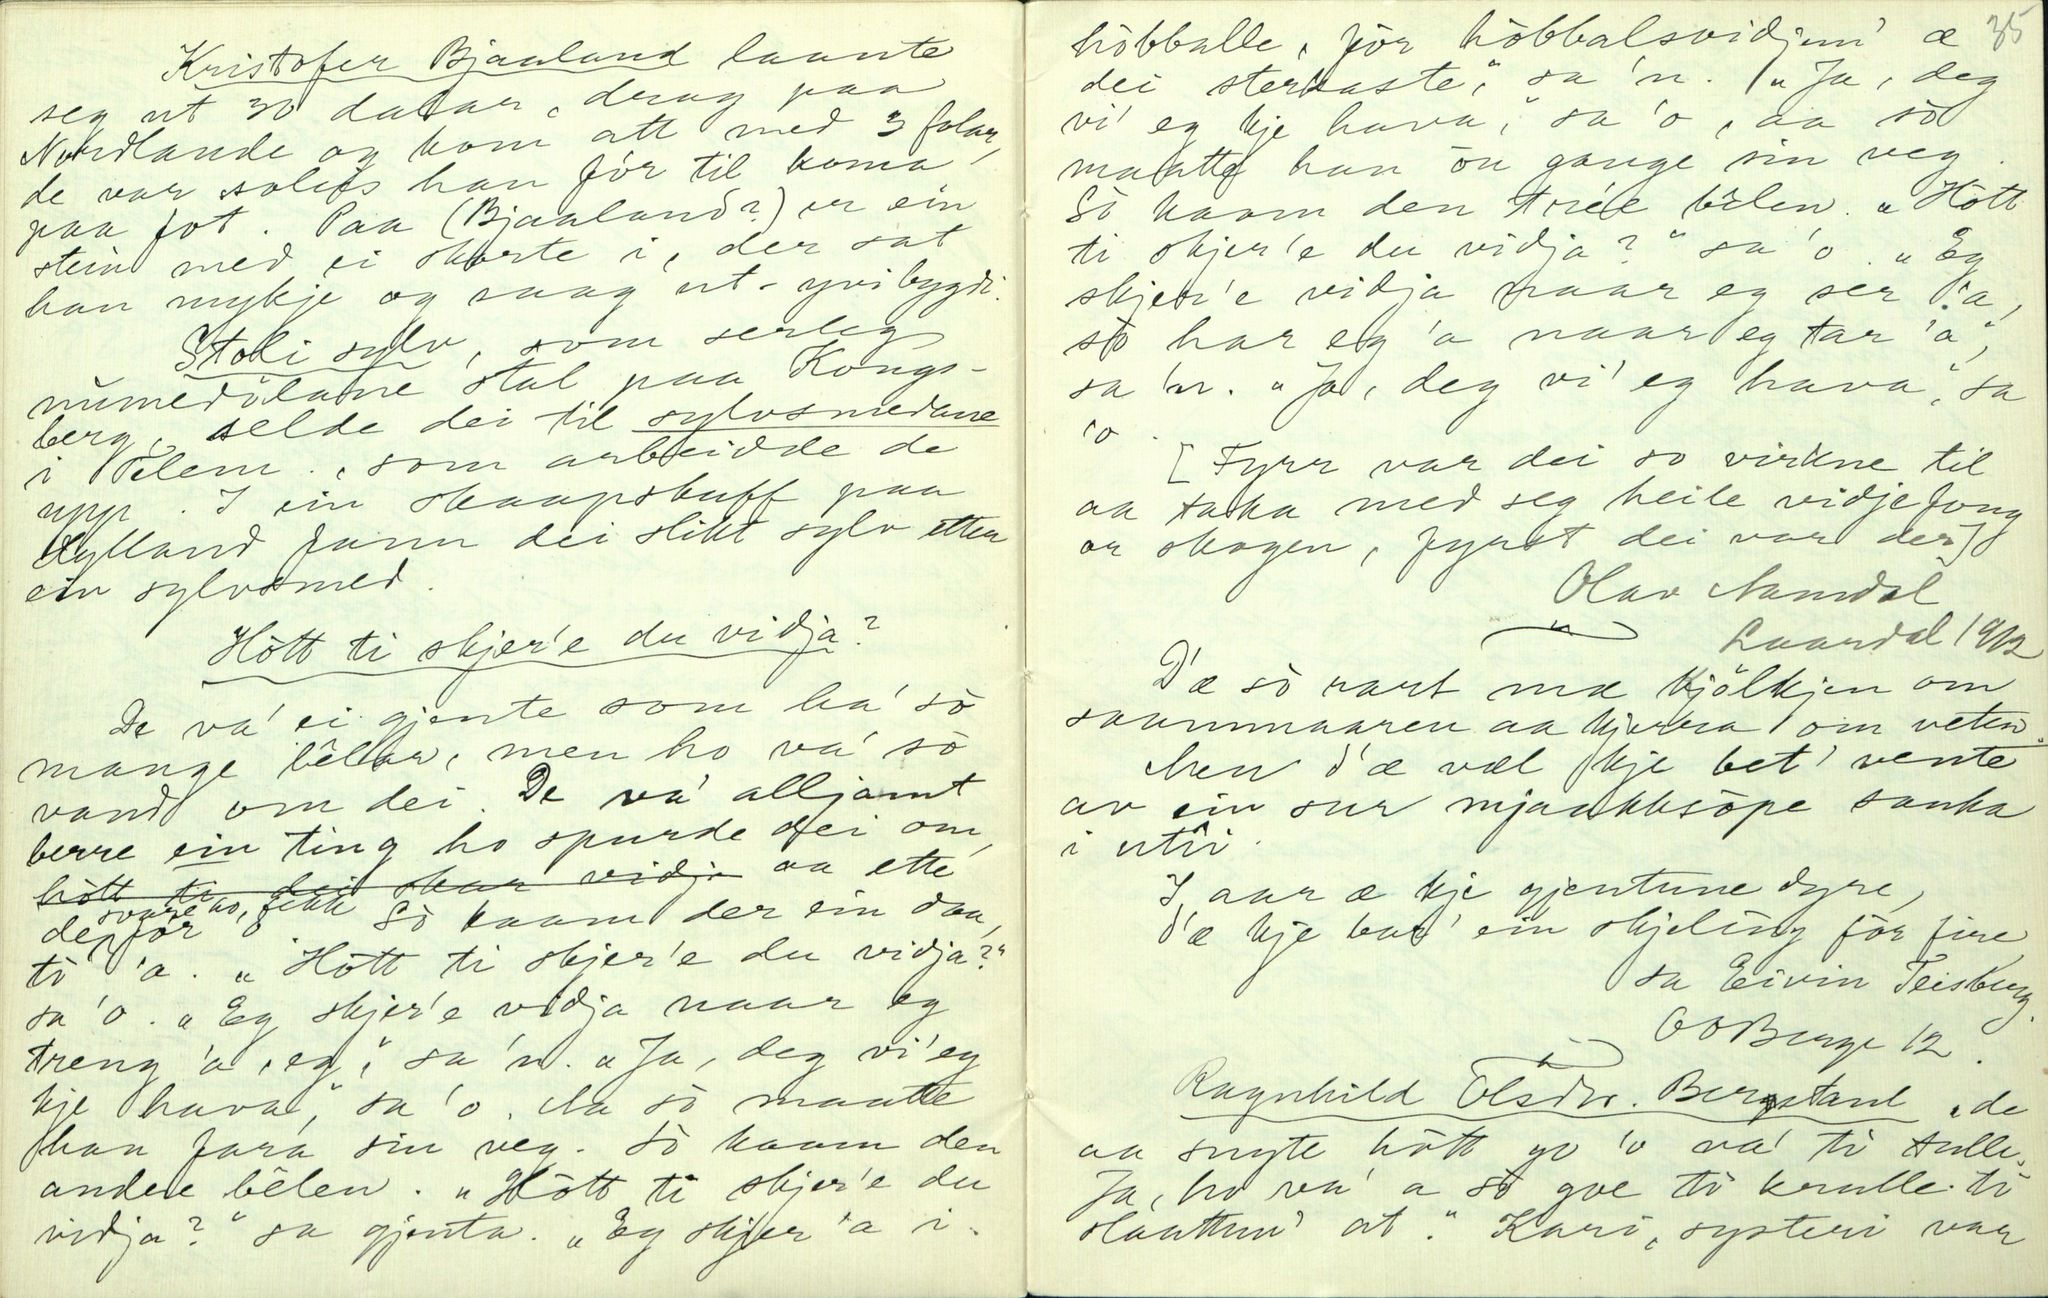 Kristofer Bjaaland laante
seg ut 30 dalar, drog paa
Nordlande og kom att med 3 folar,
de var soleis han fór til koma
paa fot. Paa (Bjaaland?) er ein
stein med ei skorte i, der sat
han mykje og saag ut-yvi bygdi.
Stoli sylv, som serleg
numedölane stal paa Kongs-
berg, selde dei til sylvsmedane
i Telem., som arbeidde de
upp. I ein skaapskuff paa
Kylland funn dei slikt sylv etter
ein sylvsmed.
Hòtt ti skjer'e du vidja?
De va' ei gjente som ha' sò
mange bêlar, men ho va' sò
vand om dei. De va' alljamt
berre ein ting ho spurde dei om,
hòtt ti dei skar vidja aa ette
de svare ho fekk
fór 'o. Sò kaam der ein daa,
ti 'a. „Hòtt ti skjer'e du vidja?"
sa 'o. „Eg skjer'e vidja naar eg
treng 'a, eg," sa 'n. „Ja, deg vi' eg
kje hava," sa 'o. Aa sò maatte
han fara sin veg. Sò kaam den
andre bêlen. „Hòtt ti skjer'e du
vidja?" sa gjenta. „Eg skjer 'a i
35
hòbballe, fòr hòbbalsvidjun' æ
dei sterkaste," sa 'n. „Ja, deg
vi' eg kje hava," sa 'o, aa sò
maatte han òu gange sin veg.
Sò kaam den trée bêlen. „Hòtt
ti skjer'e du vidja?" sa 'o. „Eg
skjer'e vidja naar eg ser 'a,
sò har eg 'a naar eg tar 'a",
sa 'n. „Ja, deg vi' eg hava," sa
'o.
[Fyrr var dei so virkne til
aa taka med seg heile vidjefong
or skogen, fyrst dei var der]
Olav Aamdal
Laardal 1912
D'æ sò rart mæ kjölkjen om
saammaaren aa kjerra om veten.
Men d'æ væl kje bet' vente
av ein sur mjaakksòpe sanka
i utîi.
I aar æ kje gjentune dyre,
d'æ kje bar' ein skjeling fór fire,
sa Eivin Teisburg.
OO Berge 12.
Ragnhild Olsdtr. Bergstaul, „de
aa snyte hòtt go 'o va' ti tulle.
Ja, ho va' a sò goe ti krulle ti
slaattun' at." Kari, systeri var